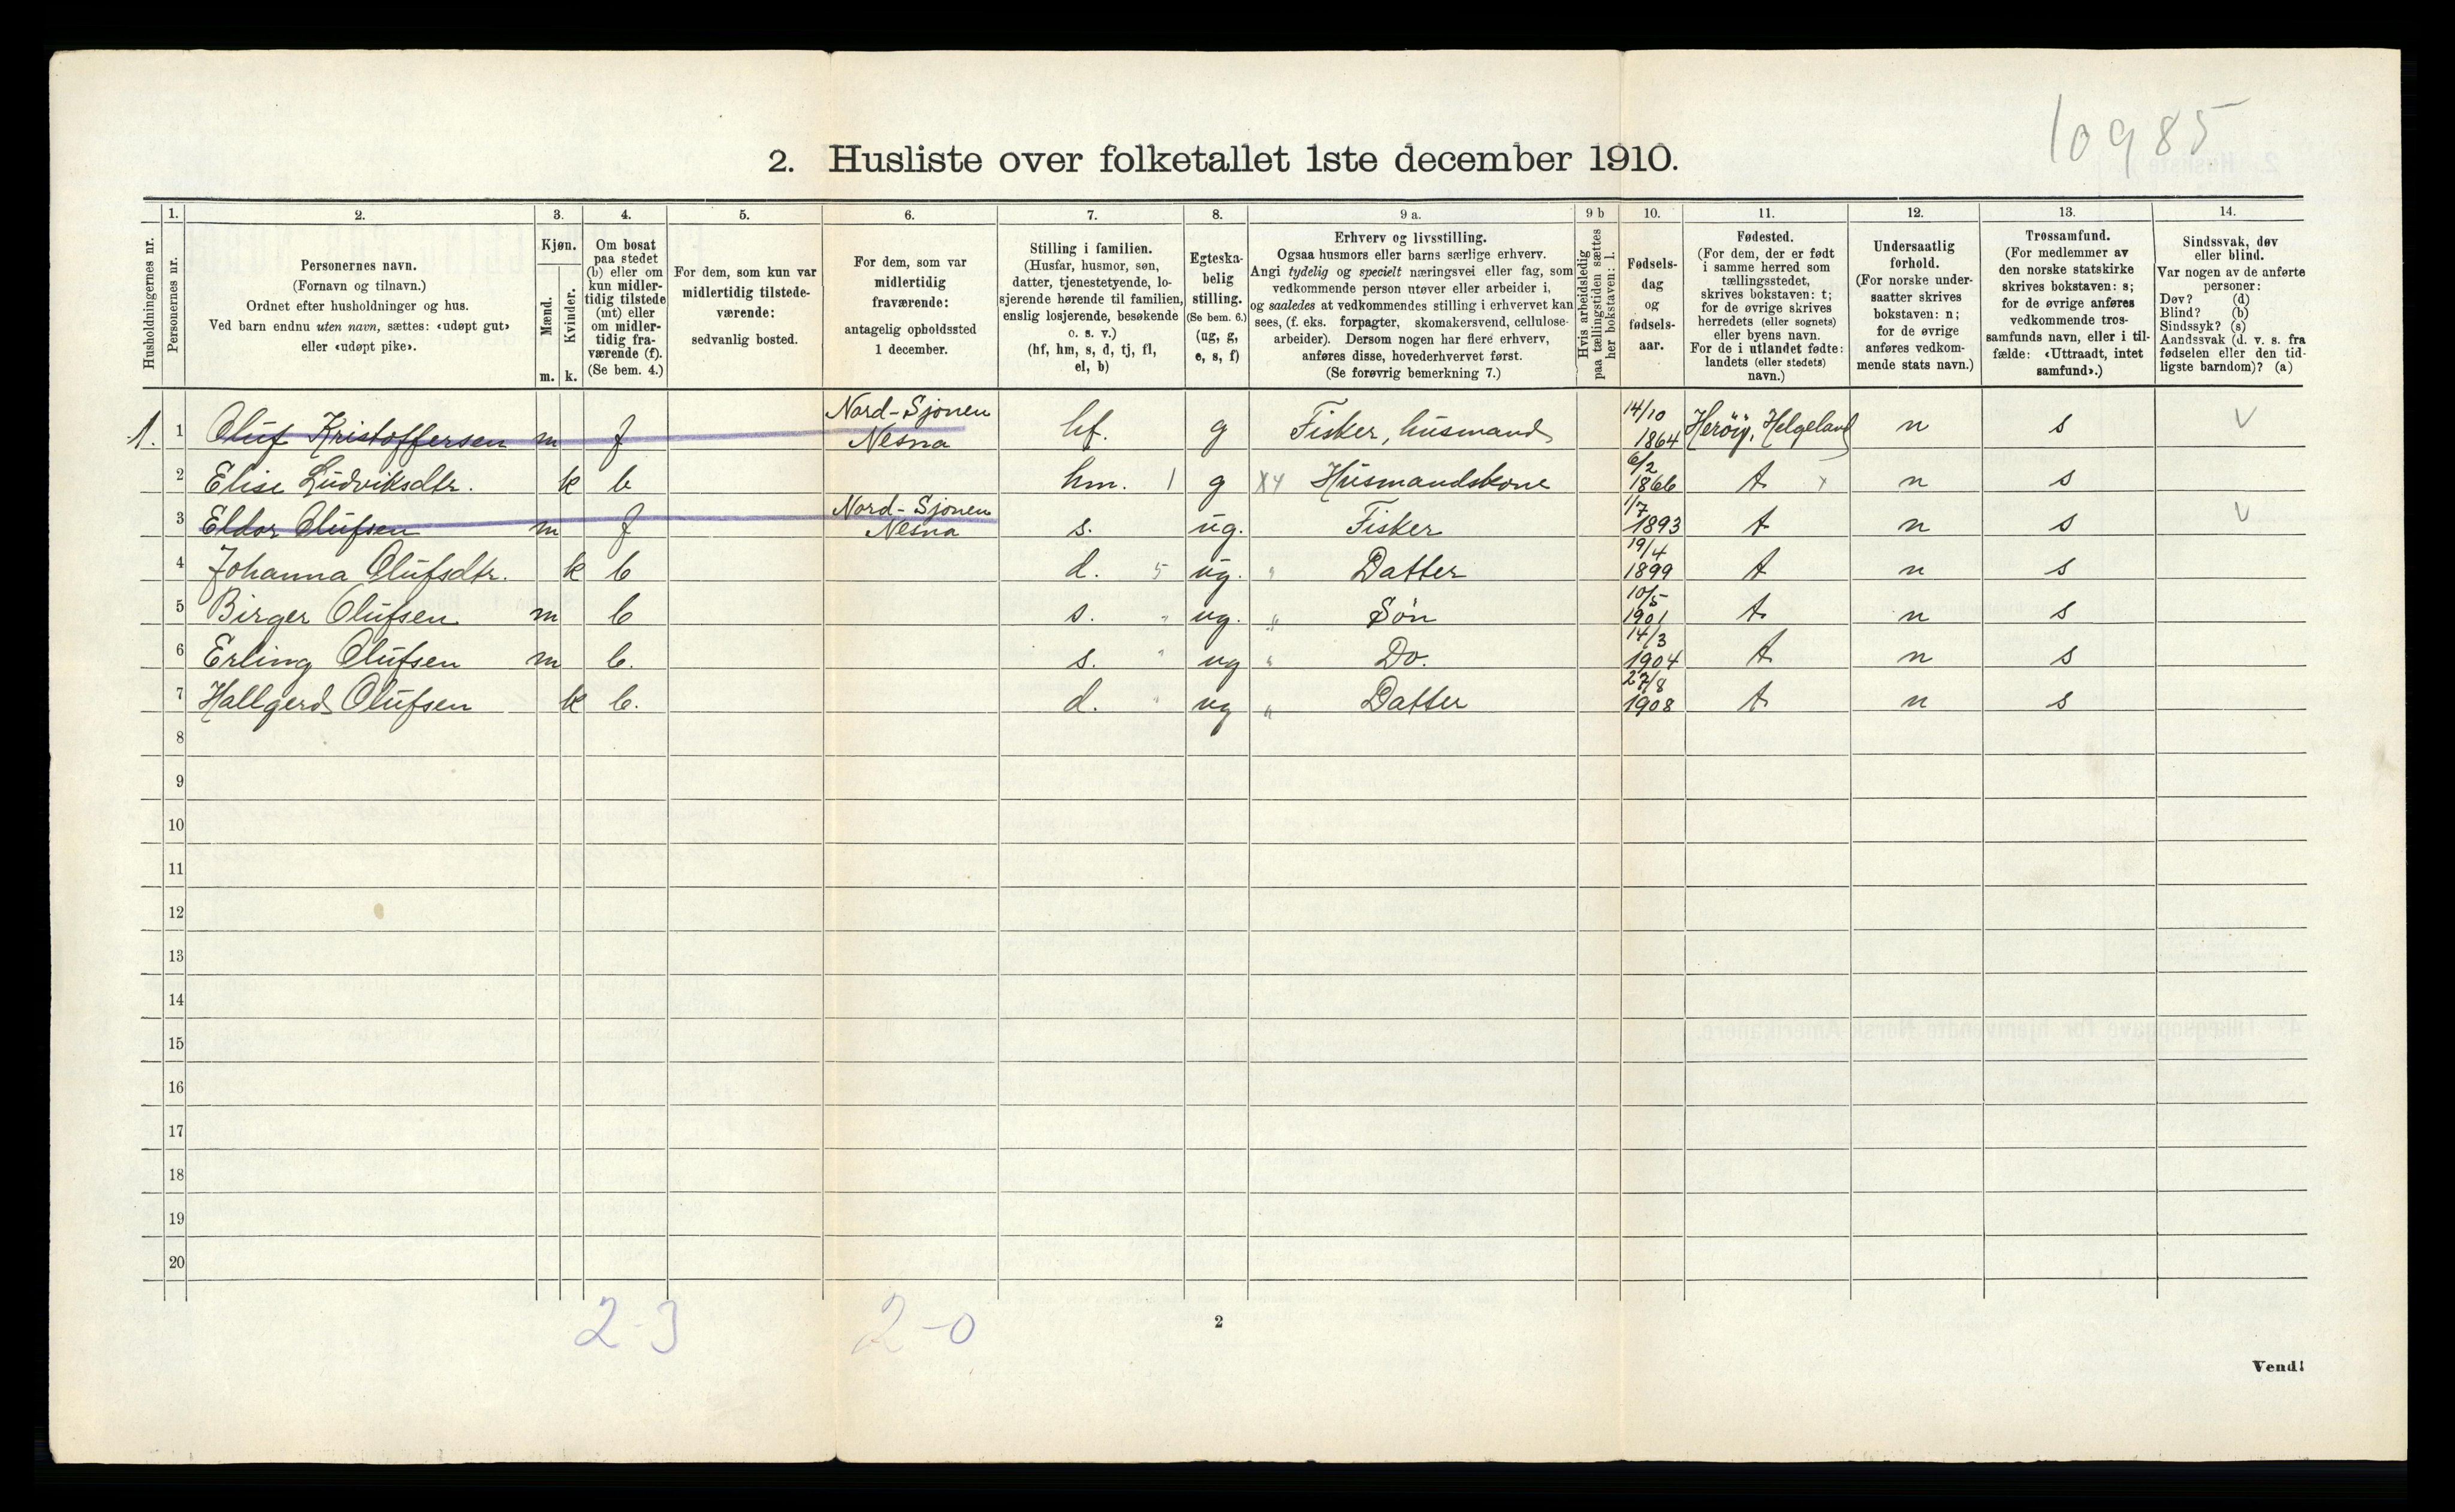 10985
2. Husliste over folketallet 1ste december 1910.
Husholdningernes nr.
1.
Personernes nr.
2.
Personernes navn.
(Fornavn og tilnavn.)
Ordnet efter husholdninger og hus.
Ved barn endnu uten navn, sættes: «udøpt gut»
eller «udøpt pike».
3.
Kjøn.
Mænd.
m.
Kvinder.
k.
4.
Om bosat
paa stedet
(b) eller om
kun midler-
tidig tilstede
(mt) eller
om midler-
tidig fra-
værende (f).
(Se bem. 4.)
5.
For dem, som kun var
midlertidig tilstede-
værende:
sedvanlig bosted.
6.
For dem, som var
midlertidig
fraværende:
antagelig opholdssted
1 december.
7.
Stilling i familien.
(Husfar, husmor, søn,
datter, tjenestetyende, lo-
sjerende hørende til familien,
enslig losjerende, besøkende
o. s. v.)
(hf, hm, s, d, tj, fl,
el, b)
8.
Egteska-
belig
stilling.
(Se bem. 6.)
(ug, g,
e, s, f)
9 a.
Erhverv og livsstilling.
Ogsaa husmors eller barns særlige erhverv.
Angi tydelig og specielt næringsvei eller fag, som
vedkommende person utøver eller arbeider i,
og saaledes at vedkommendes stilling i erhvervet kan
sees, (f. eks. forpagter, skomakersvend, cellulose-
arbeider). Dersom nogen har flere erhverv,
anføres disse, hovederhvervet først.
(Se forøvrig bemerkning 7.)
9 b
Hvis arbeidsledig
paa tællingstiden sættes
her bokstaven: l.
10.
Fødsels-
dag
og
fødsels-
aar.
11.
Fødested.
(For dem, der er født
i samme herred som
tællingsstedet,
skrives bokstaven: t;
for de øvrige skrives
herredets (eller sognets)
eller byens navn.
For de i utlandet fødte:
landets (eller stedets)
navn.)
12.
Undersaatlig
forhold.
(For norske under-
saatter skrives
bokstaven: n;
for de øvrige
anføres vedkom-
mende stats navn.)
13.
Trossamfund.
(For medlemmer av
den norske statskirke
skrives bokstaven: s;
for de øvrige anføres
vedkommende tros-
samfunds navn, eller i til-
fælde: «Uttraadt, intet
samfund».)
14.
Sindssvak, døv
eller blind.
Var nogen av de anførte
personer:
Døv? (d)
Blind? (b)
Sindssyk? (s)
Aandssvak (d. v. s. fra
fødselen eller den tid-
ligste barndom)? (a)
1. 1 Oluf Kristoffersen m f Nord-Sjonen Nesna hf. g Fisker, husmand 14/10 1864 Herøy, Helgeland n s V
2 Elise Ludviksdtr. k b hm. 1 g X4 Husmandskone 6/2 1866 t x n s
3 Eldor Olufsen m f Nord-Sjonen Nesna s. ug. Fisker 1/7 1893 t n s V
4 Johanna Olufsdtr. k b d. 5 ug. " Datter 19/4 1899 t n s
5 Birger Olufsen m b s. " ug. " Søn 10/5 1901 t n s
6 Erling Olufsen m b. s. " ug " Do. 14/3 1904 t n s
7 Hallgerd Olufsen k b. d. " ug " Datter 27/8 1908 t n s
8
9
10
11
12
13
14
15
16
17
18
19
20
2-3 2-0
2
Vend!